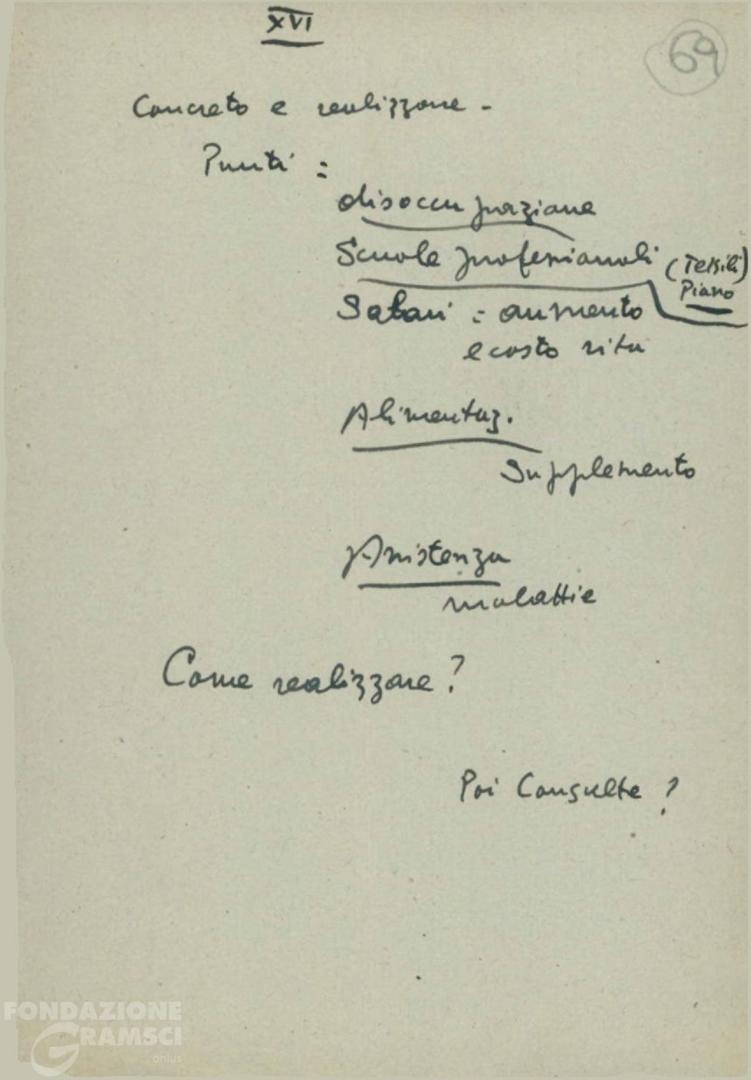 XVI
69
Concreto e realizzare -
Punti :
disoccupazione
Scuole professionali (Tessili)
Piano
Salari : aumento
e costo vita
Alimentaz.
Supplemento
Assistenza
malattie
Come realizzare?
Poi Consulte ?
FONDAZIONE
GRAMSCI
onlus